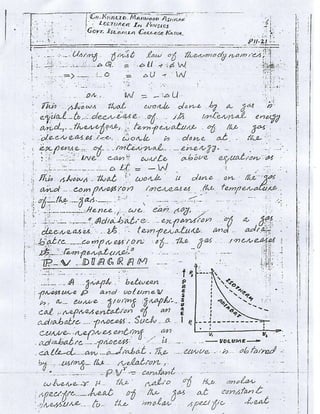 CH. KHALID MAHMOOD ASHRAF
LECTURER IN PHYSICS
GOVT. ISLAMIA COLLEGE KASUR.
P11-21
Using first law of thermodynamics.
ΔQ = ΔU + ΔW
=> 0 = ΔU + W
or W = -ΔU
This shows that work done by a gas is
equal to decrease of its internal energy
and, therefore, temperature of the gas
decreases i.e. work is done at the
expense of internal energy.
we can write above equation as
ΔU = -W
This shows that work is done on the gas
and compression increases the temperature
of the gas.
Hence, we can say,
"Adiabatic expansion of a gas
decreases its temperature and adia-
batic compression of the gas increases
its temperature."
P-V DIAGRAM
A graph between
pressure P and volume V
is a curve giving graphi-
cal representation of an
adiabatic process. Such a
curve representing an
adiabatic process is
called an adiabat. The curve is obtained
by using the relation,
PVʳ = constant
where r is the ratio of the molar
specific heat of the gas at constant
pressure to the molar specific heat
PRESSURE
ISOTHERM
ADIABAT
VOLUME